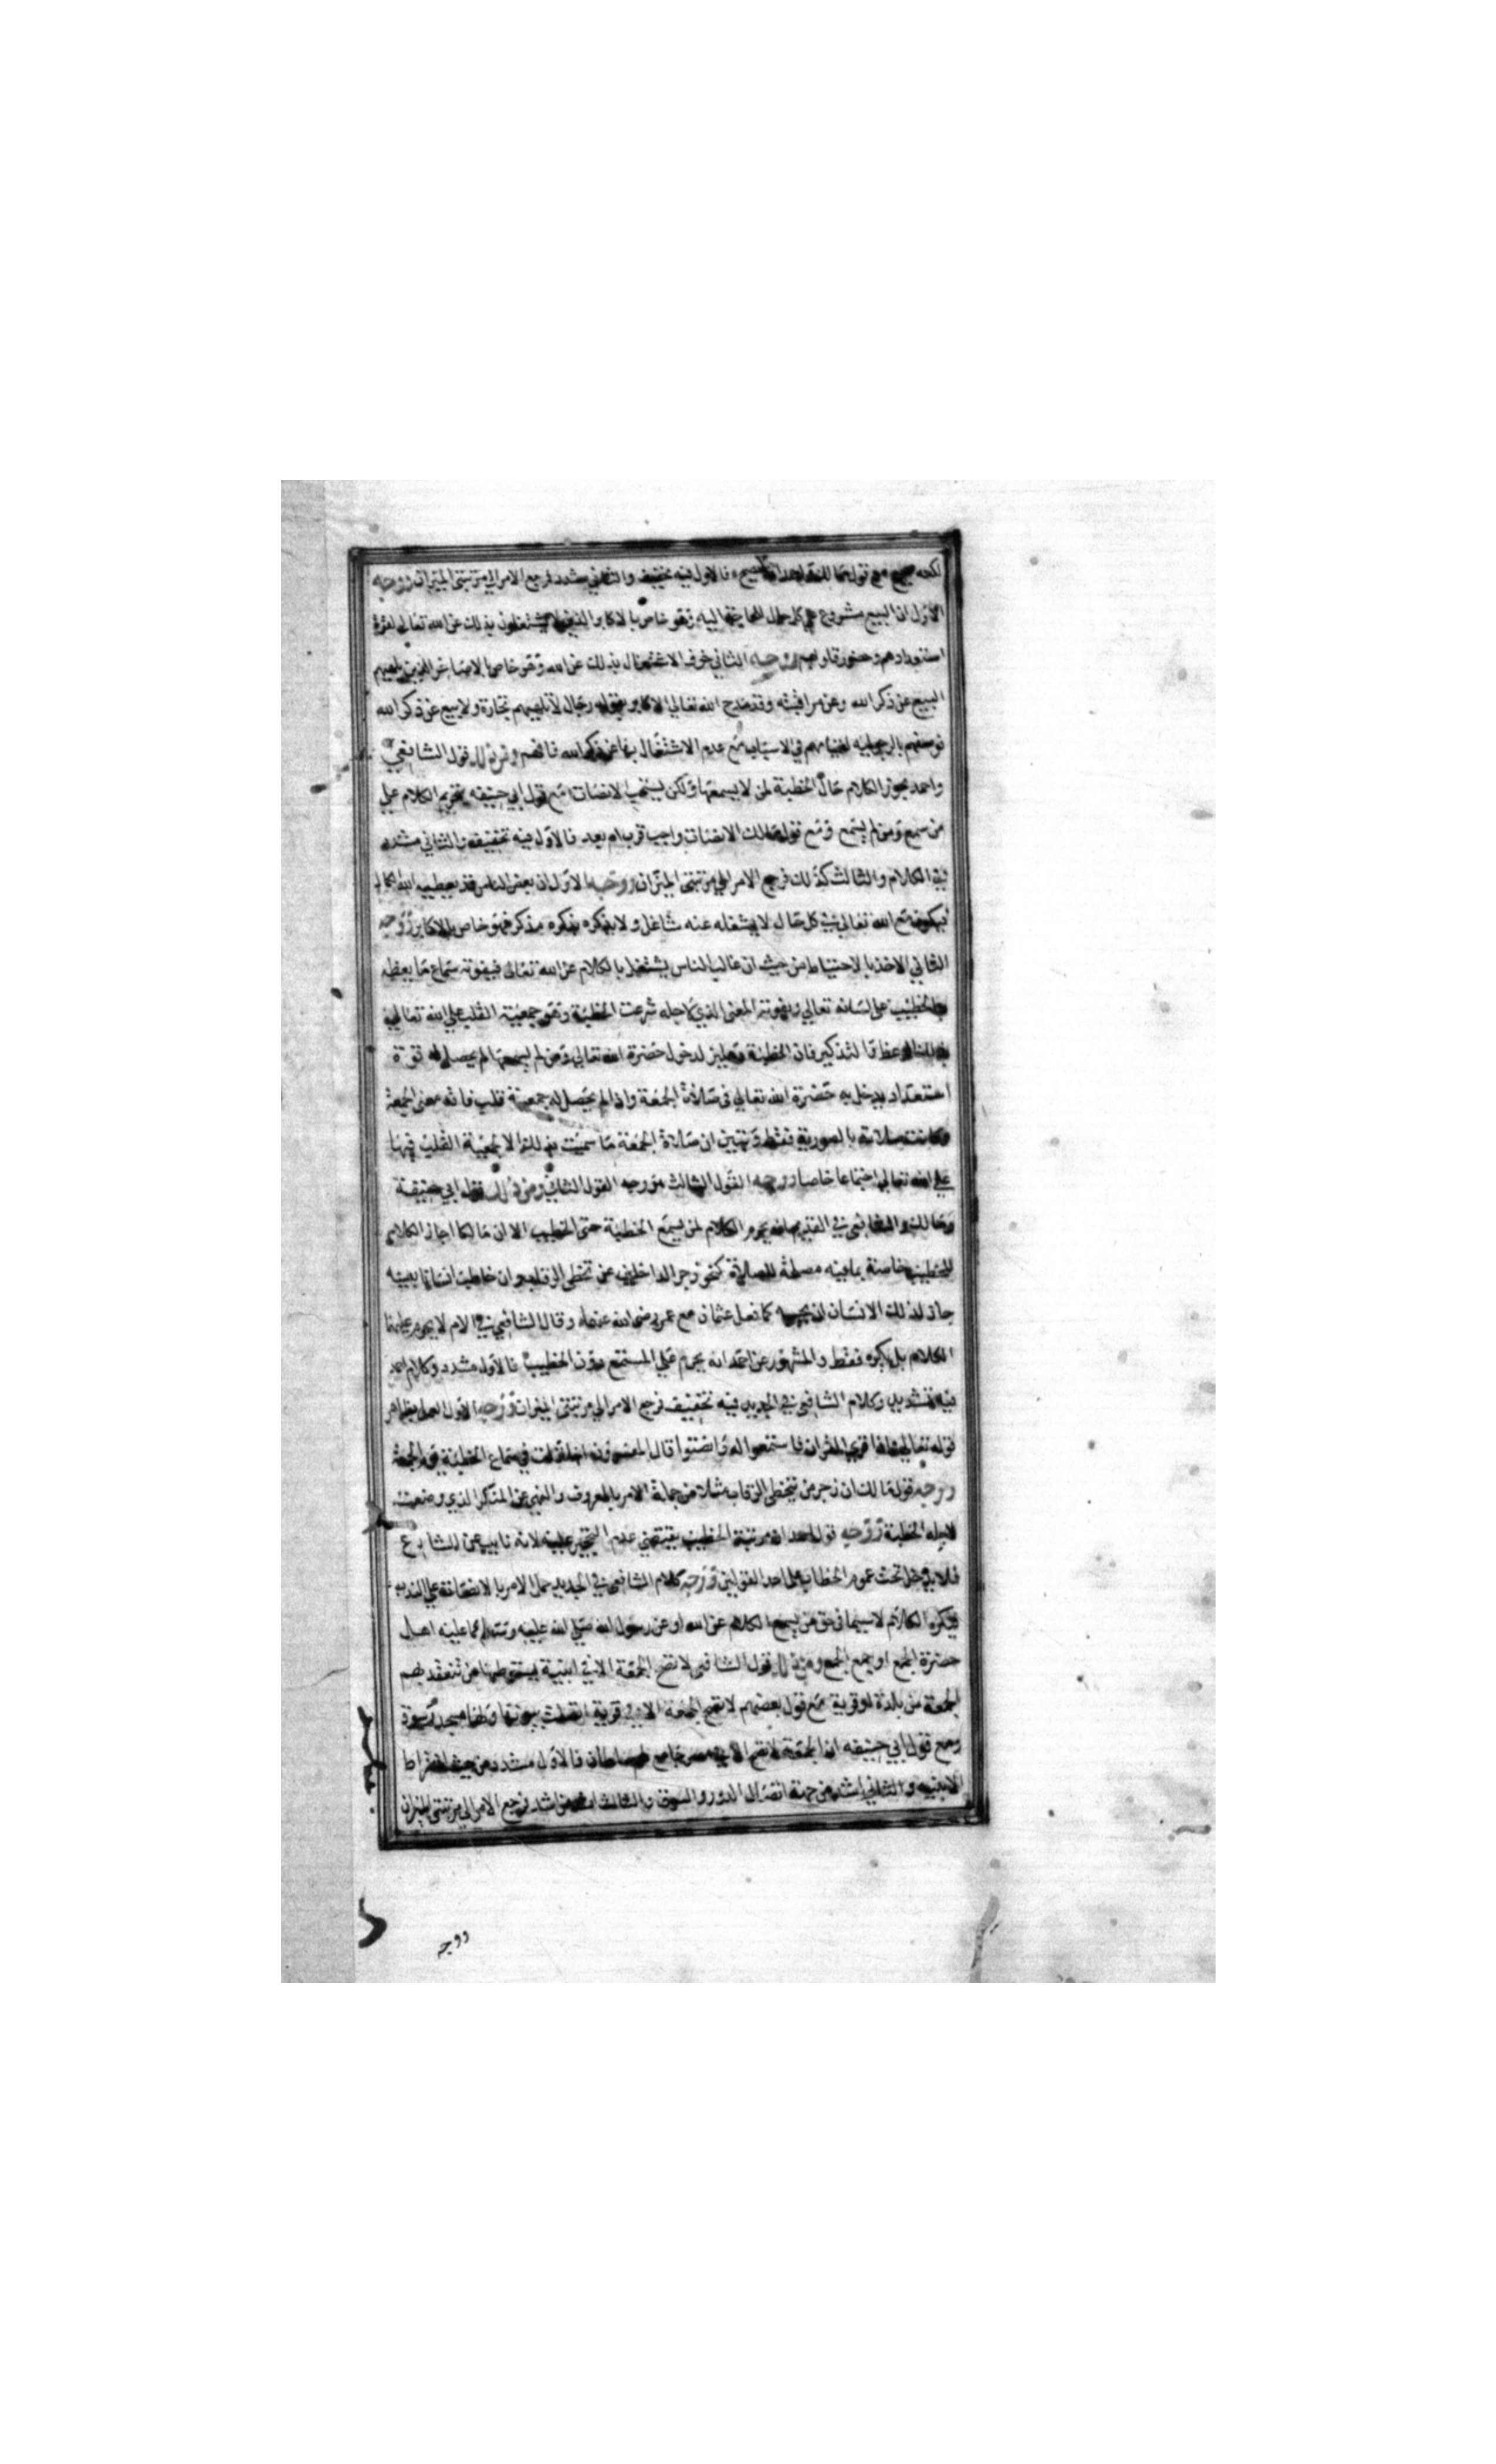 لكنه صحيح مع قول مالك واحمد انه لا يصح فالاول فيه تخفيف والثاني مشدد فرجع الامر الى مرتبتي الميزان ووجه
الاول ان البيع مشروع على كل حال للحاجة اليه وهو خاص بالاكابر الذين لا يشتغلون بذلك عن الله تعالى لقوة
استعدادهم وحضور قلوبهم ووجه الثاني خوف الاشتغال بذلك عن الله وهو خاص بالاصاغر الذين يلهيهم
البيع عن ذكر الله وعن مراقبته وقد مدح الله تعالى الاكابر بقوله رجال لا تلهيهم تجارة ولا بيع عن ذكر الله
فوصفهم بالرجولية لقيامهم في الاسباب مع عدم الاشتغال بها عن ذكر الله فافهم ومن ذلك قول الشافعي
واحمد بجواز الكلام حال الخطبة لمن لا يسمعها ولكن يستحب الانصات مع قول ابي حنيفه بتحريم الكلام علي
من سمع ومن لم يسمع ومع قول مالك الانصات واجب قرب ام بعد فالاول فيه تخفيف والثاني مشدد
في الكلام والثالث كذلك فرجع الامر الى مرتبتي الميزان ووجه الاول ان بعض الناس قد يعطيه الله كمالا
فيكون مع الله تعالى في كل حال لا يشغله عنه شاغل ولا يذكره بذكره مذكر فهو خاص بالاكابر ووجه
الثاني الاخذ بالاحتياط من حيث ان غالب الناس يشتغل بالكلام عن الله تعالى فيفوته سماع ما يعظه
به الخطيب على لسانه تعالي ويفوته المعنى الذي لاجله شرعت الخطبة وهو جمعية القلب علي الله تعالي
بذلك الوعظ والتذكير فان الخطبة دهليز لدخول حضرة الله تعالي ومن لم يسمعها لم يحصل له قوة
استعداد يدخل به حضرة الله تعالي في صلاة الجمعة واذا لم يحصل له جمعية قلب فاته معنى الجمعة
وكانت صلاته بالصورة فقط وتبين ان صلاة الجمعة ما سميت بذلك الا لجمعية القلب فيها
على الله تعالى اجتماعا خاصا ووجه القول الثالث هو وجه القول الثاني ومن ذلك قول ابي حنيفة
ومالك والشافعي في القديم انه يحرم الكلام لمن يسمع الخطبة حتى الخطيب الا ان مالكا اجاز الكلام
للخطيب خاصة بما فيه مصلحة للصلاة كنحو زجر الداخلين عن تخطى الرقاب وان خاطب انسانا بعينه
جاز لذلك الانسان ان يجيبه كما فعل عثمان مع عمر رضي الله عنهما وقال الشافعي في الام لا يحرم عليهما
الكلام بل يكره فقط والمشهور عن احمد انه يحرم علي المستمع دون الخطيب فالاول مشدد وكلام احمد
فيه تشديد وكلام الشافعي في الجديد فيه تخفيف فرجع الامر الي مرتبتي الميزان ووجه الاول العمل بظاهر
قوله تعالي واذا قرئ القران فاستمعوا له وانصتوا قال المفسرون انها نزلت في سماع الخطبة يوم الجمعة
ووجه قول مالك ان زجر من يتخطى الرقاب مثلا من جملة الامر بالمعروف والنهي عن المنكر الذي وضعت
لاجله الخطبة ووجه قول احمد ان مرتبة الخطيب يقتضي عدم التحجير عليه لانه نايب عن الشارع
فلا يدخل تحت عموم الخطاب على احد القولين ووجه كلام الشافعي في الجديد حمل الامر بالانصات علي الندب
فيكره الكلام لاسيما في حق من يسمع الكلام عن الله او عن رسول الله صلى الله عليه وسلم مما عليه اهل
حضرة الجمع او جمع الجمع ومن ذلك قول الشافعي لا تصح الجمعة الا في ابنية يستوطنها من تنعقد بهم
الجمعة من بلدة او قرية مع قول بعضهم لا تصح الجمعة الا في قرية اتصلت بيوتها ولها مسجد وسوق
ومع قول ابي حنيفه ان الجمعة لا تصح الا في مصر جامع لهم سلطان فالاول مشدد من حيث اشتراط
الابنيه والثاني اشد من جهة اتصال الدور والسوق والثالث اشد من اشد فرجع الامر الي مرتبتي الميزان
ووجه